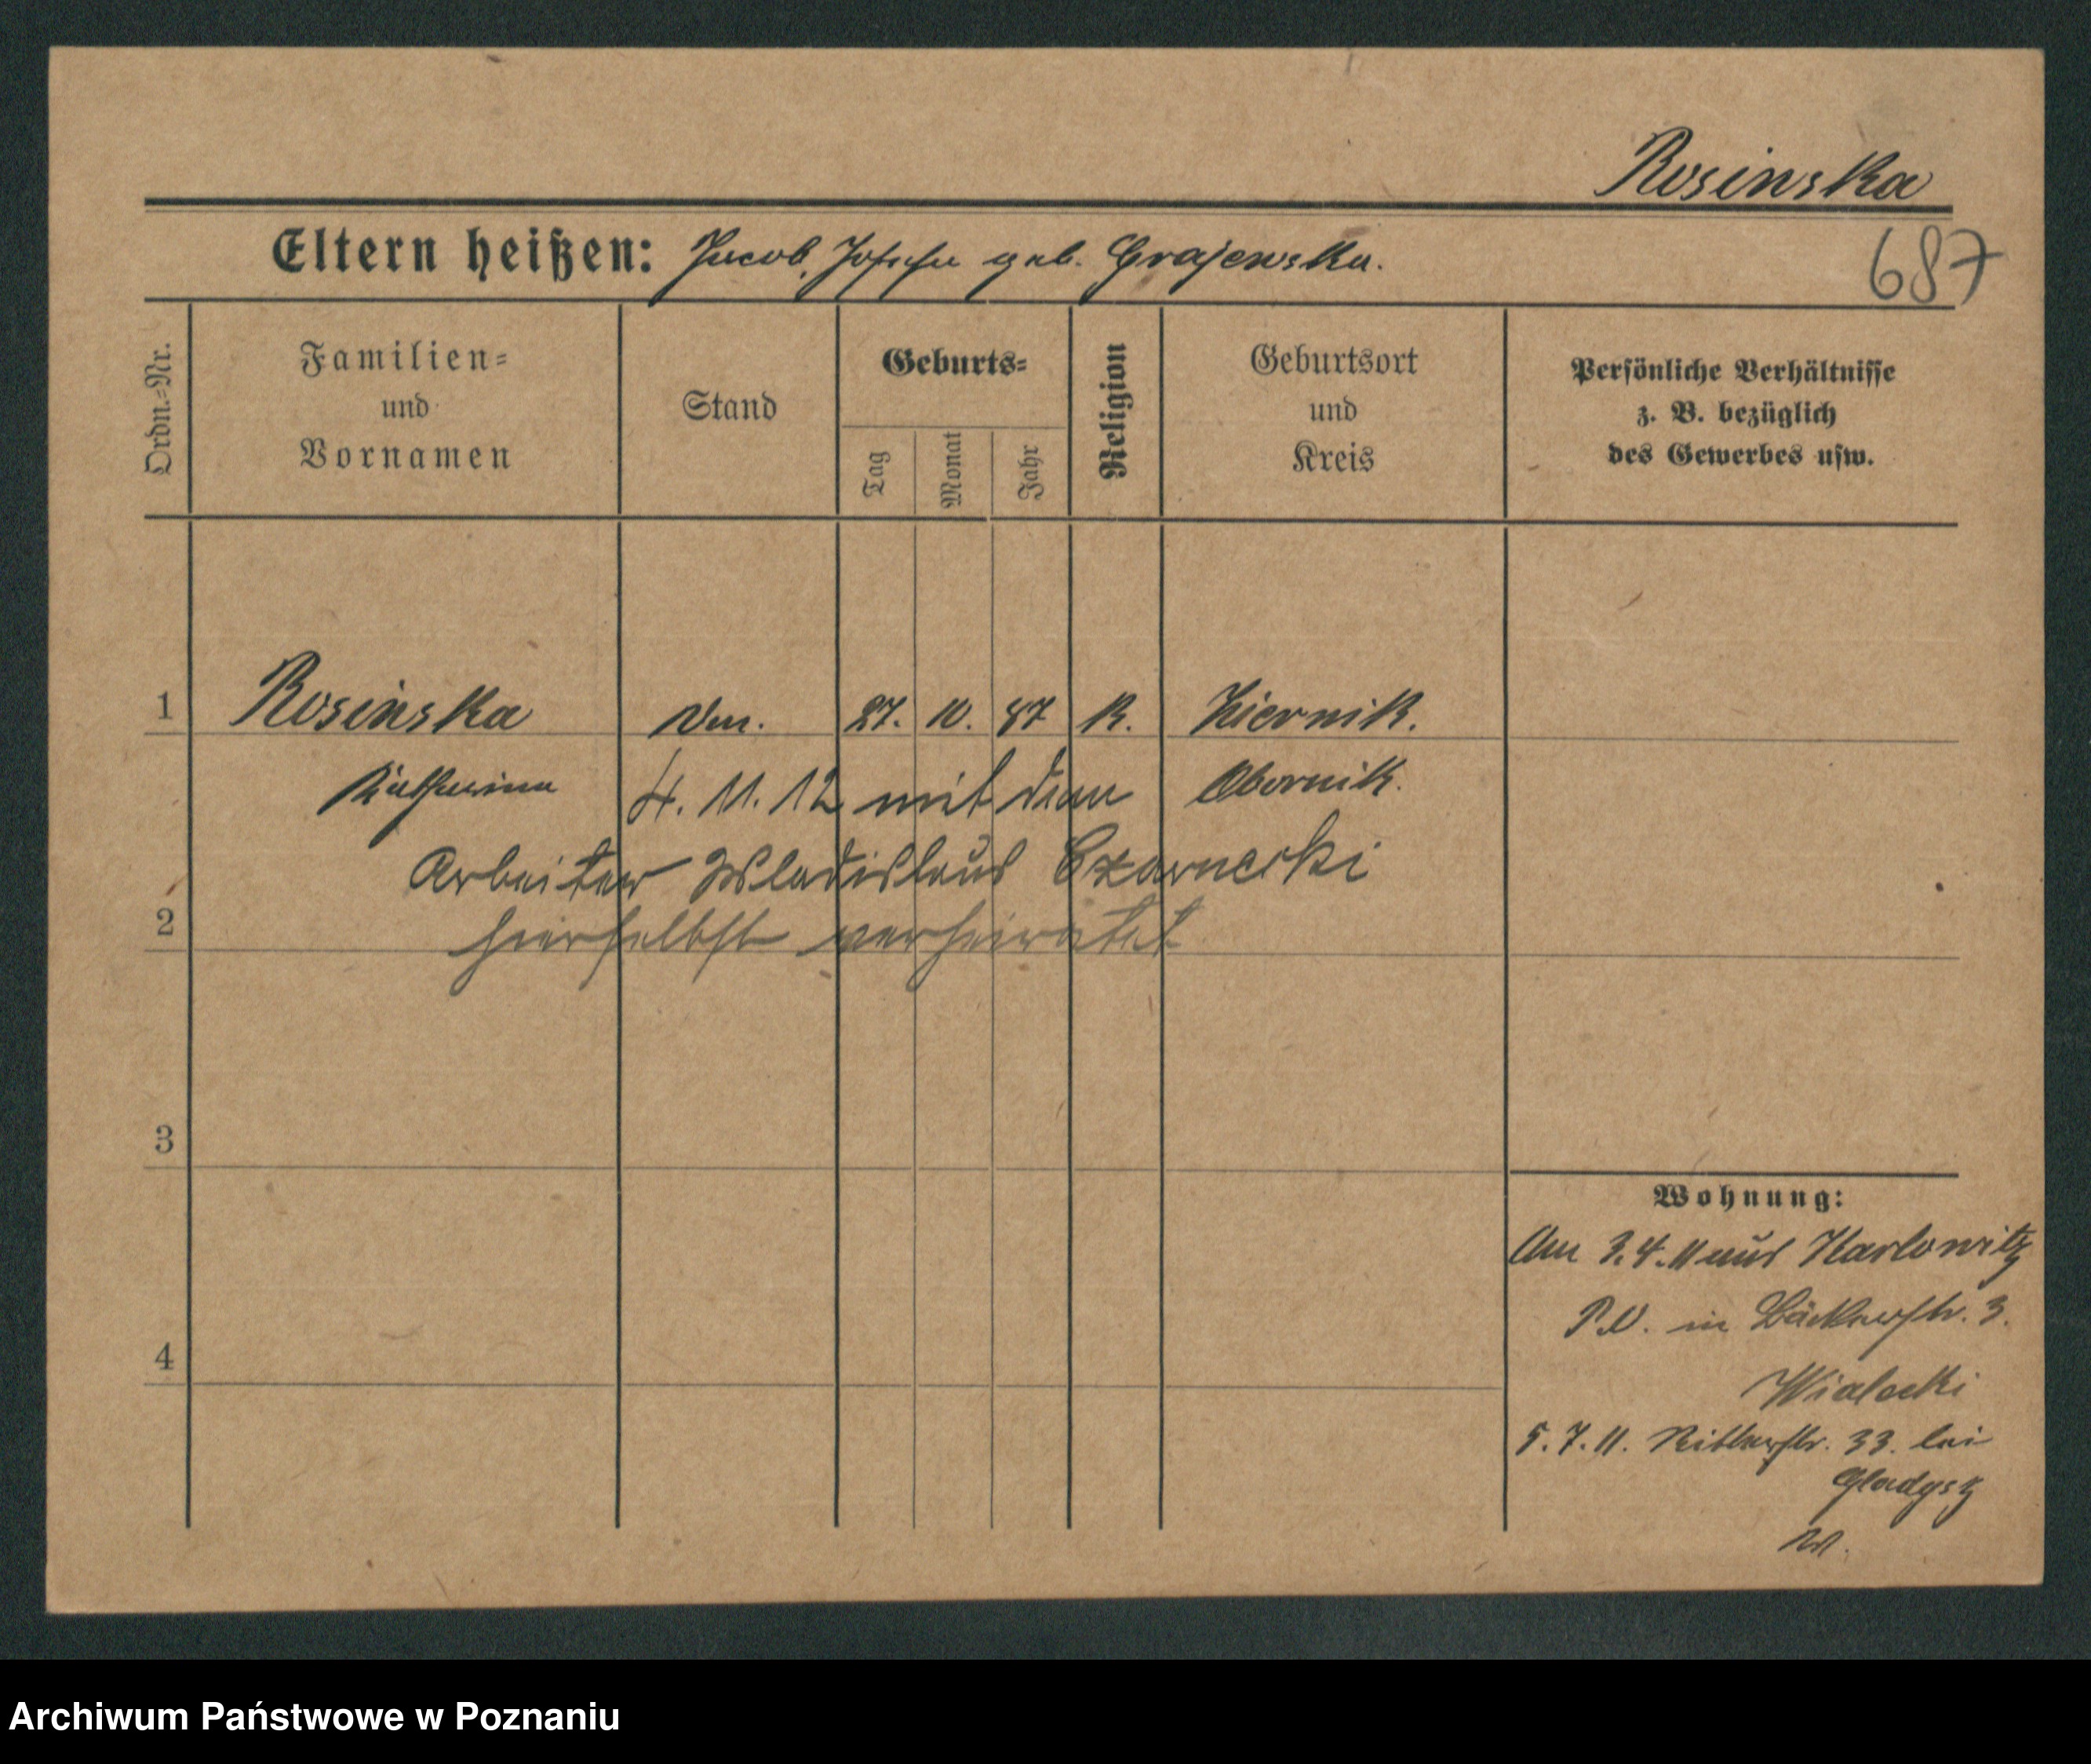 Rosinska
Eltern heißen: Jacob, Josefa geb. Grajewska.
687
Ordn.-Nr.
Familien-
und
Vornamen
Stand
Geburts-
Tag
Monat
Jahr
Religion
Geburtsort
und
Kreis
Persönliche Verhältnisse
z. B. bezüglich
des Gewerbes usw.
1 Rosinska 27. 10. 87 K. Kiernik.
Katharina 4. 11. 12 mit dem Obornik.
Arbeiter Wladislaus Czarnecki
2 hierselbst verheiratet
3
4
Wohnung:
Am 3.4.11 aus Karlowitz
P.O. in Bäckerstr. 3.
Wialecki
5.7.11. Ritterstr. 33. bei
Gladysz
Archiwum Państwowe w Poznaniu